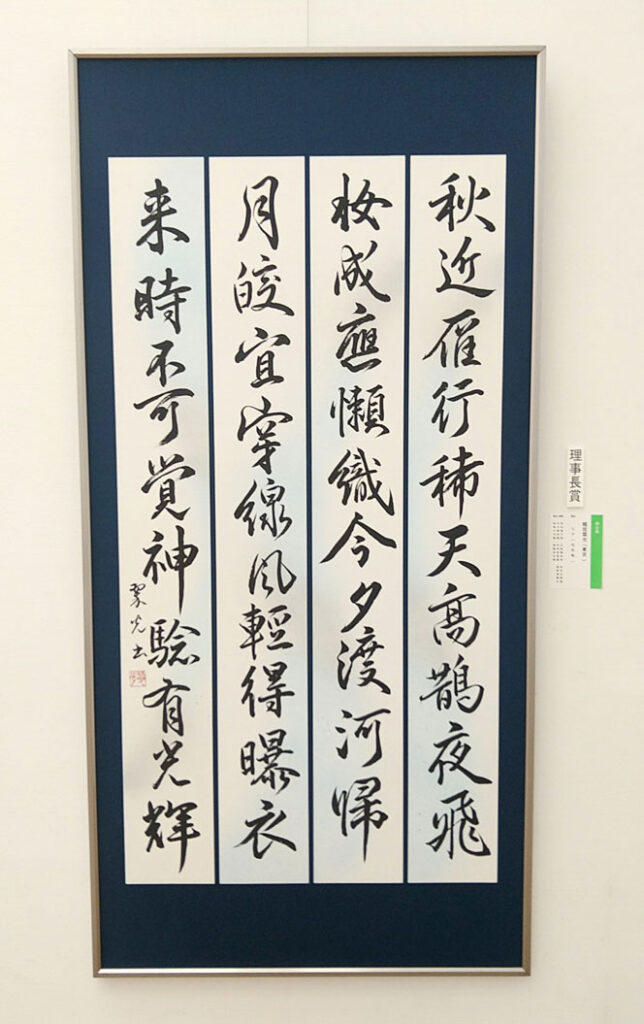 秋近雁行稀天高鵲夜飛
妝成應懶織今夕渡河歸
月皎宜穿線風輕得曝衣
来時不可覚神驗有光輝
翠光書
理事長賞